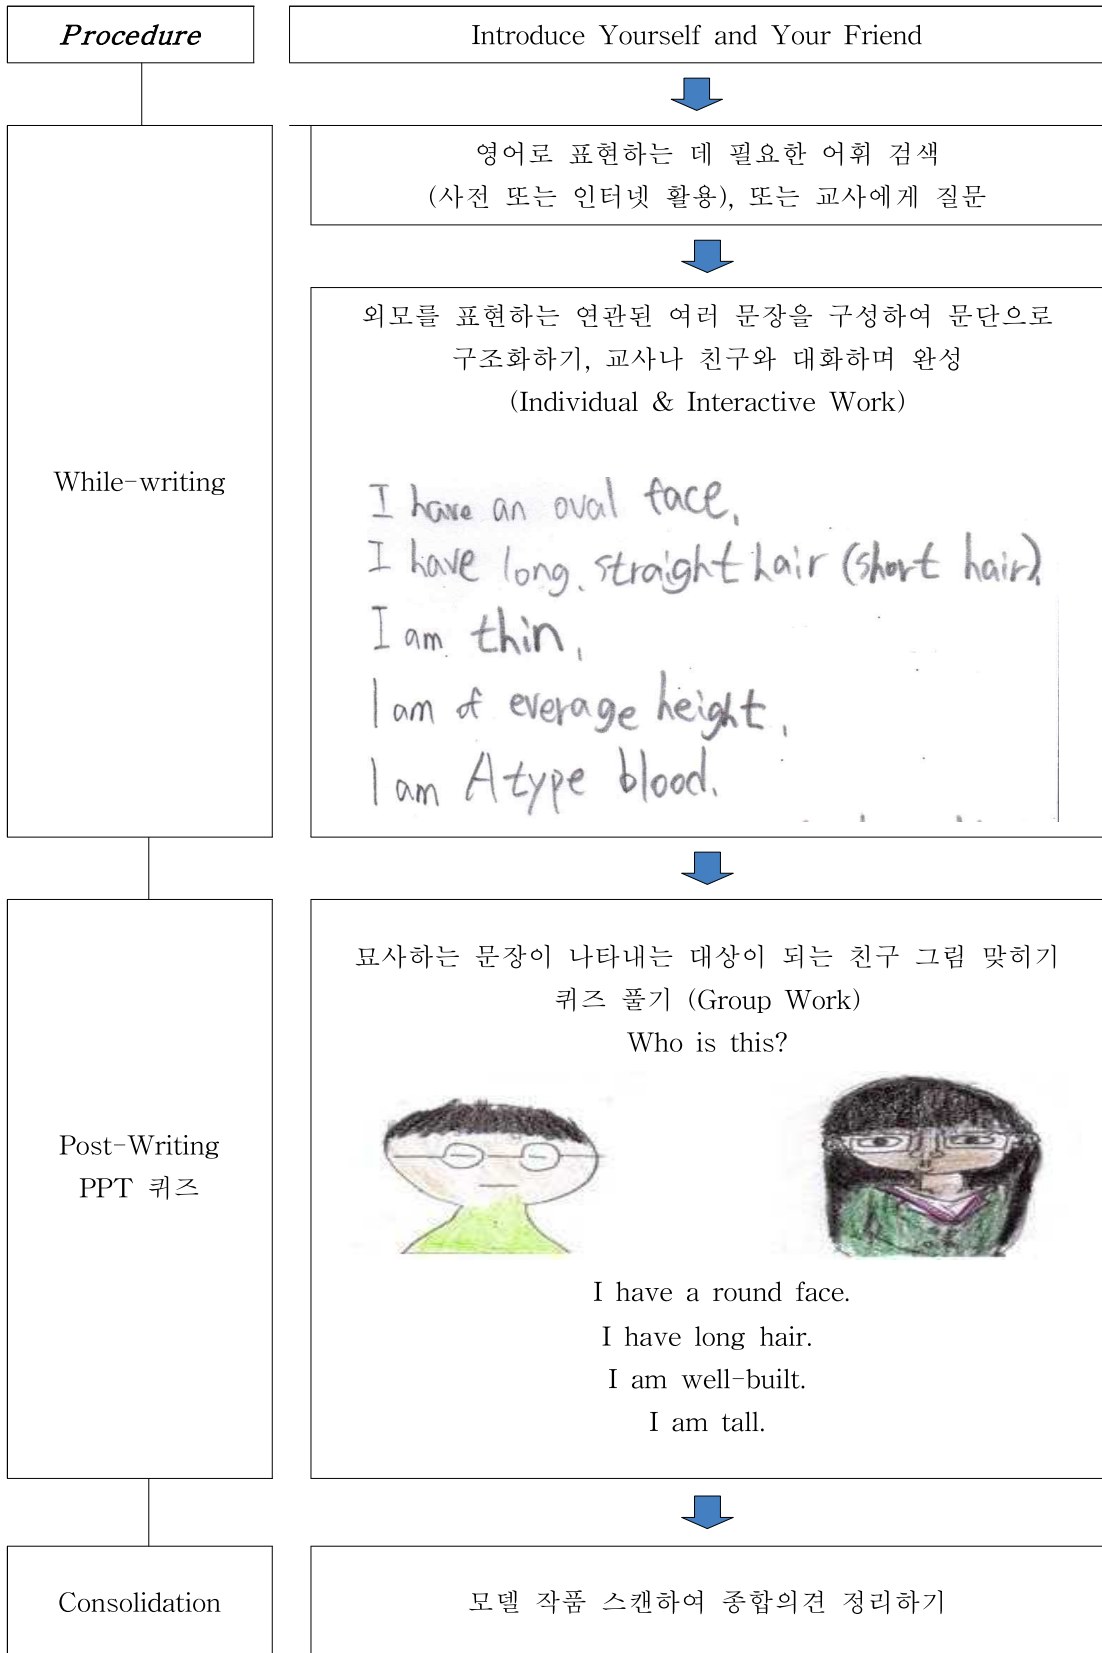 Procedure
Introduce Yourself and Your Friend
영어로 표현하는 데 필요한 어휘 검색
(사전 또는 인터넷 활용), 또는 교사에게 질문
While-writing
외모를 표현하는 연관된 여러 문장을 구성하여 문단으로
구조화하기, 교사나 친구와 대화하며 완성
(Individual & Interactive Work)
I have an oval face,
I have long, straight hair (short hair),
I am thin,
I am of everage height,
I am A type blood.
Post-Writing
PPT 퀴즈
묘사하는 문장이 나타내는 대상이 되는 친구 그림 맞히기
퀴즈 풀기 (Group Work)
Who is this?
I have a round face.
I have long hair.
I am well-built.
I am tall.
Consolidation
모델 작품 스캔하여 종합의견 정리하기